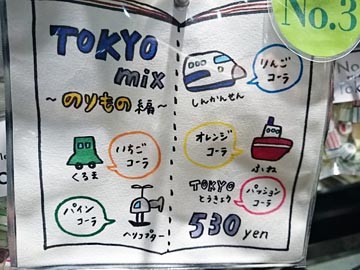 No.3
TOKYO
mix
～のりもの編～
いちご
コーラ
くるま
パイン
コーラ
ヘリコプター
りんご
コーラ
しんかんせん
オレンジ
コーラ
ふね
TOKYO
とうきょう
パッション
コーラ
530yen